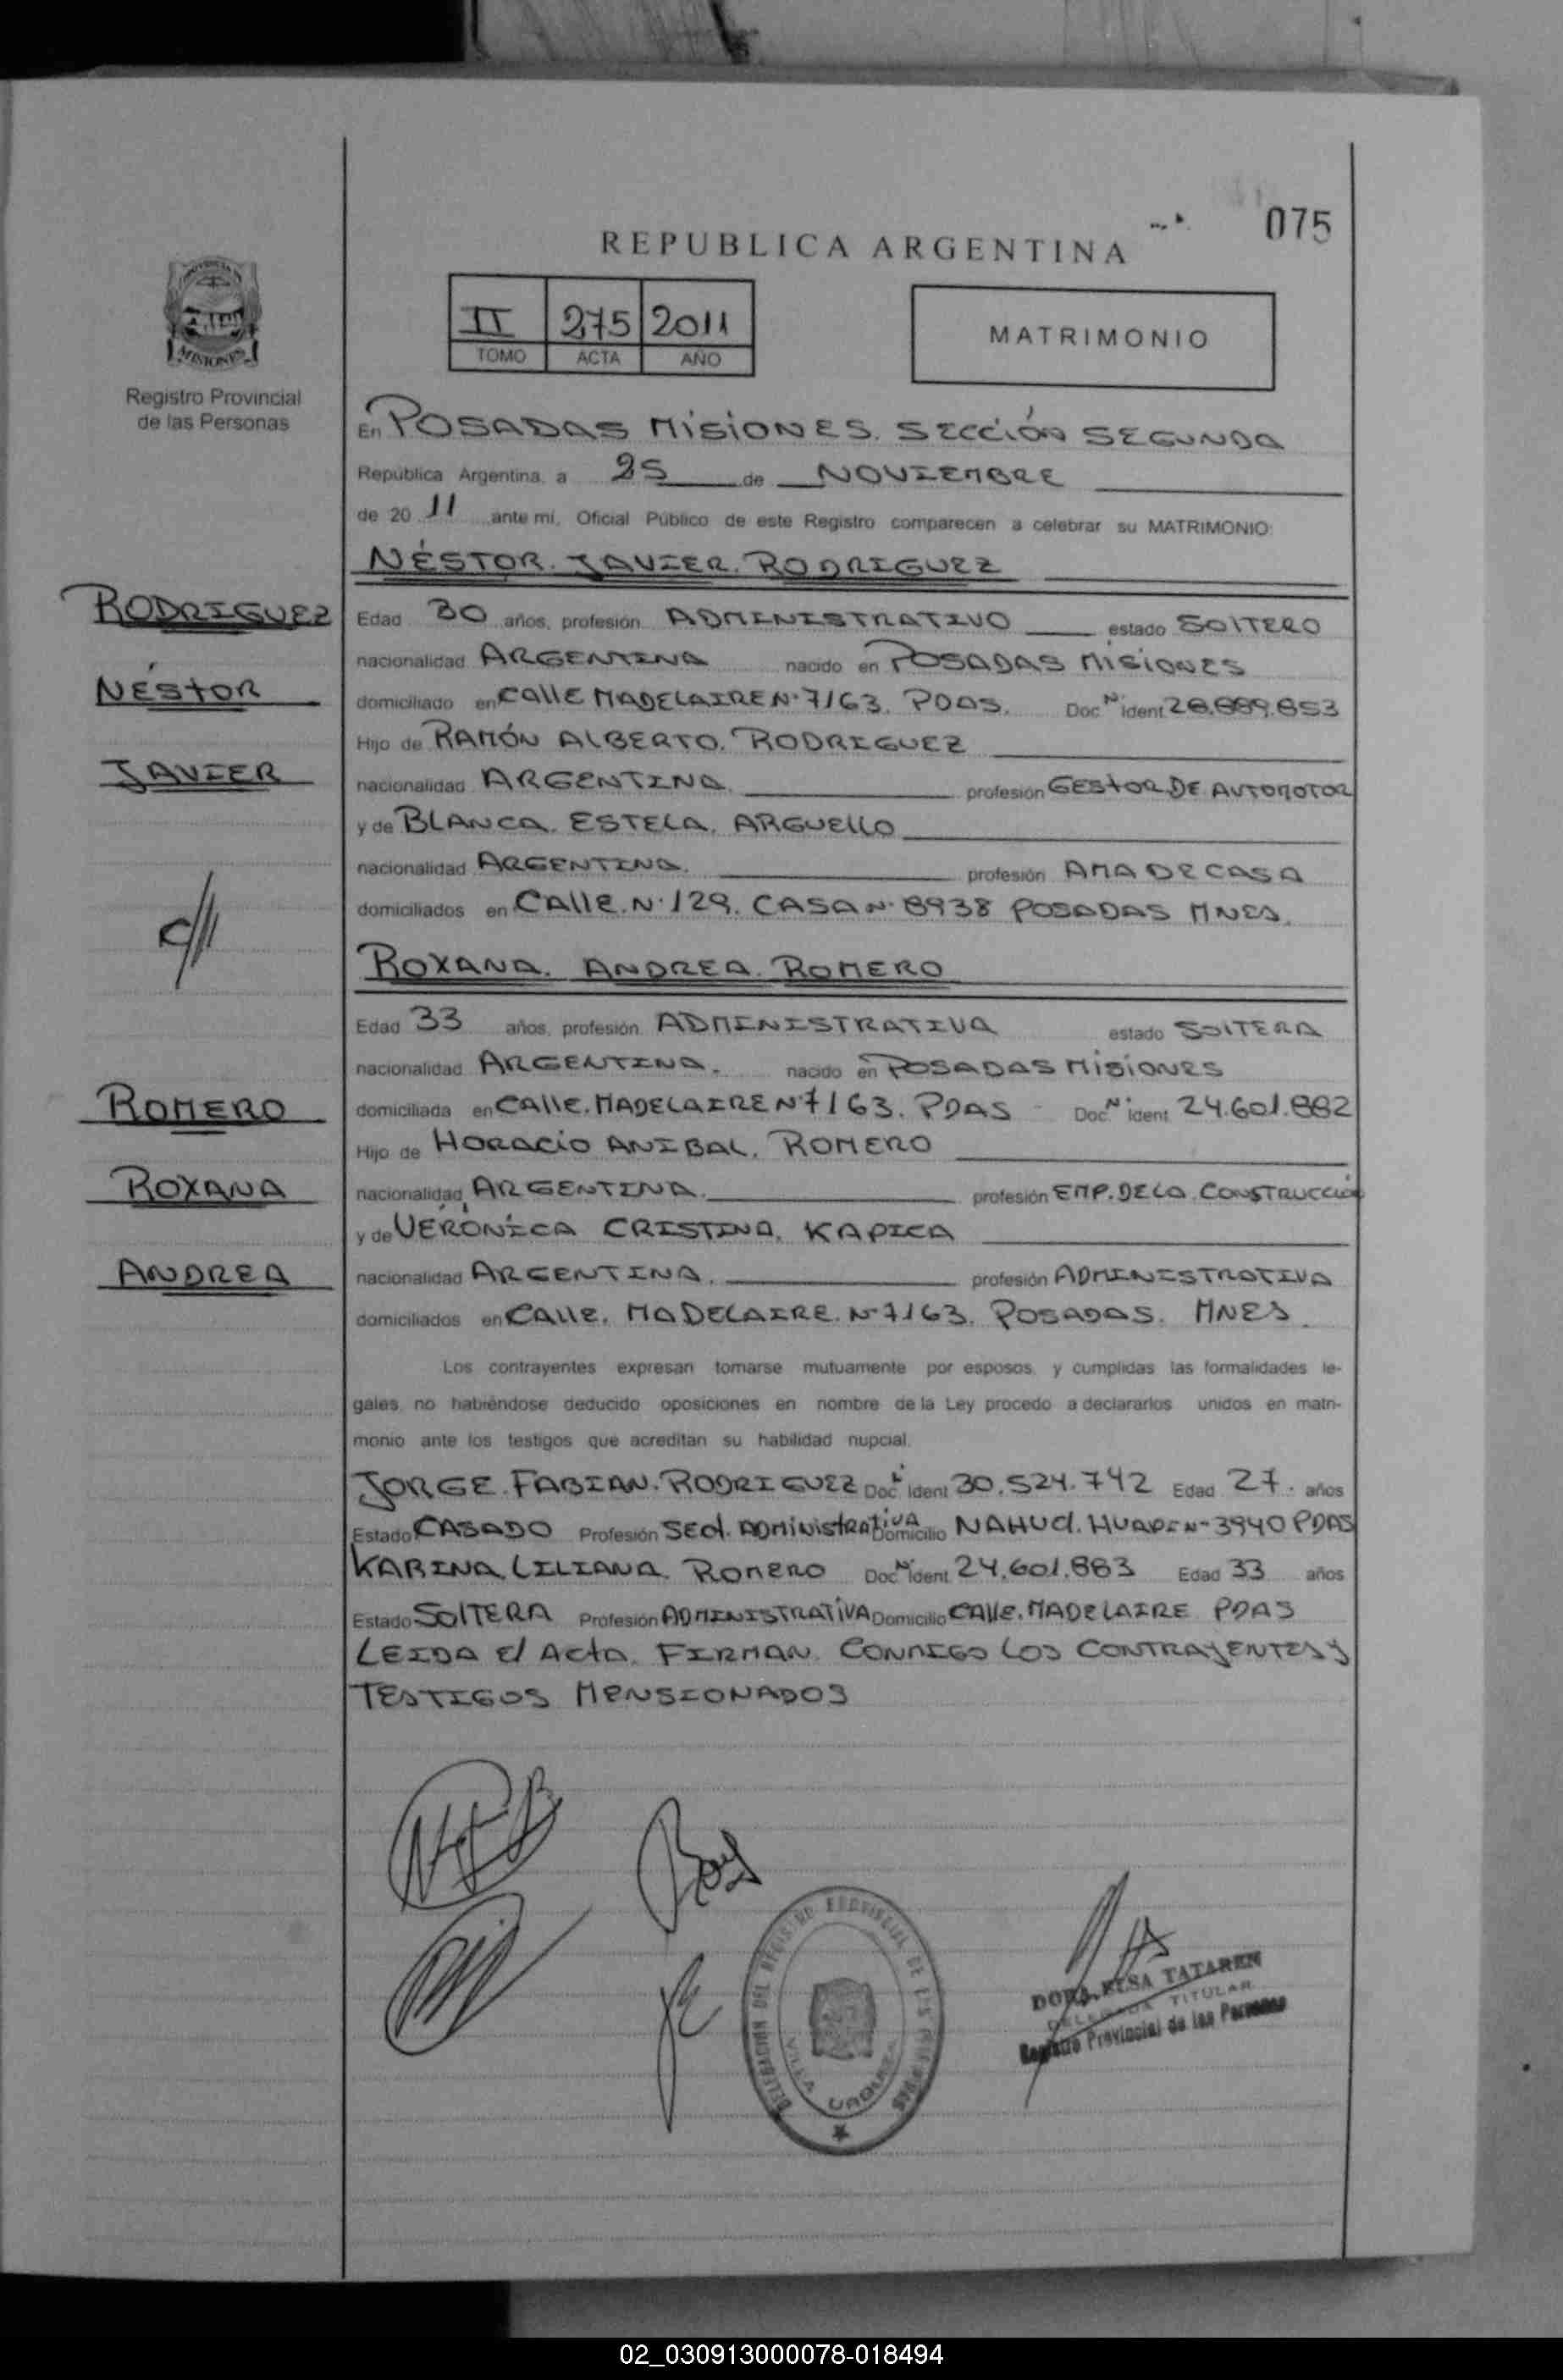 075
REPUBLICA ARGENTINA
II 275 2011
TOMO ACTA AÑO
MATRIMONIO
PROVINCIA DE
MISIONES
Registro Provincial
de las Personas
En POSADAS MISIONES. SECCIÓN SEGUNDA
República Argentina, a 25 de NOVIEMBRE
de 20 11 ante mí, Oficial Público de este Registro comparecen a celebrar su MATRIMONIO:
NÉSTOR. JAVIER. RODRIGUEZ
RODRIGUEZ
Edad 30 años, profesión ADMINISTRATIVO estado SOLTERO
nacionalidad ARGENTINA nacido en POSADAS MISIONES
NÉSTOR
domiciliado en CALLE MADELAIRE N° 7163. PDAS. Doc. N° ident 28.889.853
Hijo de RAMÓN ALBERTO. RODRIGUEZ
JAVIER
nacionalidad ARGENTINA. profesión GESTOR DE AUTOMOTOR
y de BLANCA. ESTELA. ARGUELLO
nacionalidad ARGENTINA. profesión AMA DE CASA
domiciliados en CALLE. N° 129. CASA N° 8938 POSADAS MNES.
C/
ROXANA. ANDREA. ROMERO
Edad 33 años, profesión ADMINISTRATIVA estado SOLTERA
nacionalidad ARGENTINA. nacido en POSADAS MISIONES
ROMERO
domiciliada en CALLE. MADELAIRE N° 7163. PDAS - Doc. N° ident 24.601.882
Hijo de HORACIO ANIBAL. ROMERO
ROXANA
nacionalidad ARGENTINA. profesión EMP. DE LA CONSTRUCCIÓN
y de VERÓNICA CRISTINA. KAPICA
ANDREA
nacionalidad ARGENTINA. profesión ADMINISTRATIVA
domiciliados en CALLE. MADELAIRE. N° 7163. POSADAS. MNES.
Los contrayentes expresan tomarse mutuamente por esposos, y cumplidas las formalidades le-
gales, no habiéndose deducido oposiciones en nombre de la Ley procedo a declararlos unidos en matri-
monio ante los testigos que acreditan su habilidad nupcial.
JORGE. FABIAN. RODRIGUEZ Doc. N° ident 30.524.742 Edad 27. años
Estado CASADO Profesión SECL. ADMINISTRATIVA Domicilio NAHUEL. HUAPI N° 3940 PDAS
KARINA. LILIANA. ROMERO Doc. N° ident 24.601.883 Edad 33 años
Estado SOLTERA Profesión ADMINISTRATIVA Domicilio CALLE. MADELAIRE PDAS
LEIDA El ActA. FIRMAN. CONMIGO LOS CONTRAYENTES Y
TESTIGOS MENSIONADOS
DELEGACION DEL REGISTRO PROVINCIAL DE LAS PERSONAS
VILLA URQUIZA
DORA ELSA TATAREN
DELEGADA TITULAR
Registro Provincial de las Personas
02_030913000078-018494